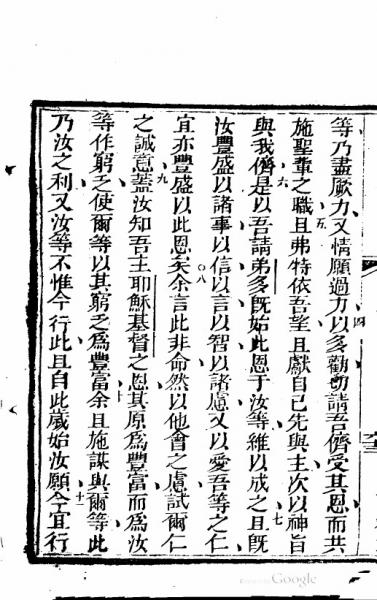 等乃盡厥力又情願過力以多勸勿請吾儕受其恩而共
施聖輩之職且弗特依吾望且獻自己先與主次以神旨
與我儕是以吾請弟多既始此恩于汝等維以成之且既
汝豐盛以諸事以信以言以智以諸慮又以愛吾等之仁
宜亦豐盛以此恩矣余言此非命然以他會之慮試爾仁
之誠意蓋汝知吾主耶穌基督之恩其原為豐富而為汝
等作窮乏使爾等以其窮乏為豐富余且施謀與爾等此
乃汝之利又汝等不惟今行此且自此歲始汝願今宜行
四
五
六
七
八
九
十
十一
Google